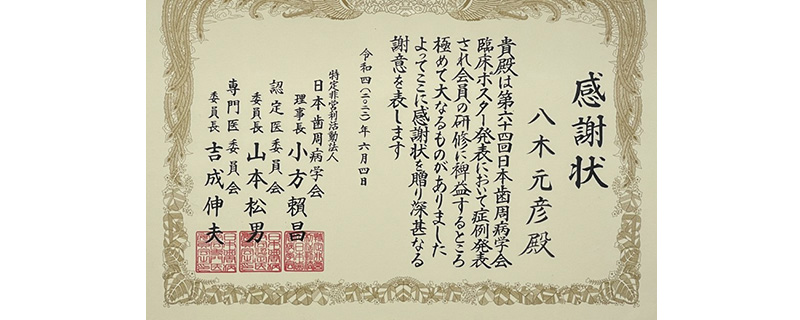 感謝状
八木元彦殿
貴殿は第六十四回日本歯周病学会
臨床ポスター発表において症例発表
され会員の研修に裨益するところ
極めて大なるものがありました
よってここに感謝状を贈り深甚なる
謝意を表します
令和四(二〇二二)年六月四日
特定非営利活動法人
日本歯周病学会
理事長 小方賴昌
認定医委員会
委員長 山本松男
専門医委員会
委員長 吉成伸夫